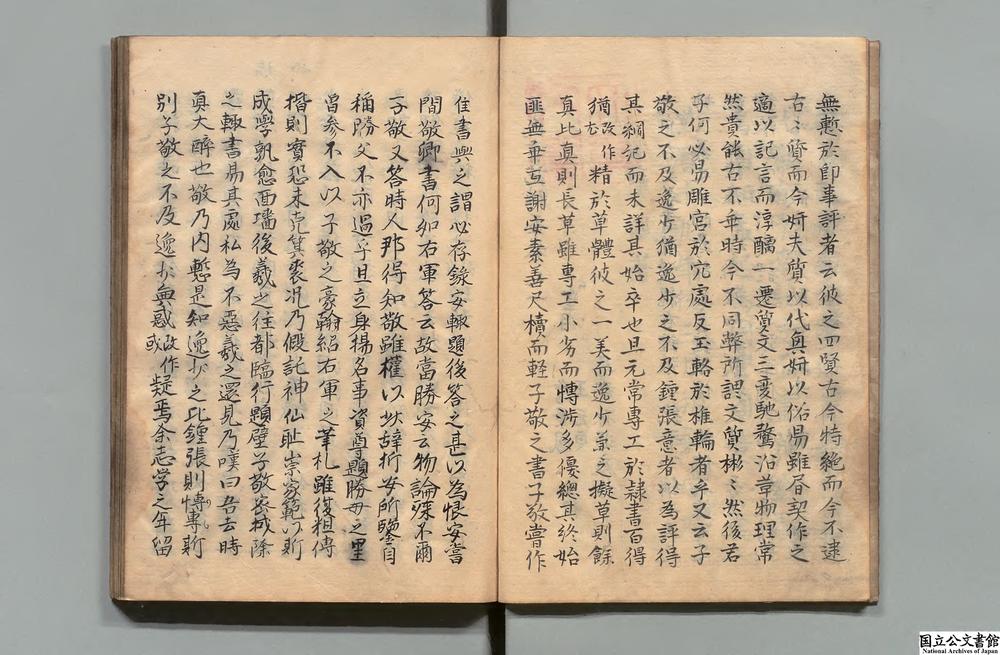 無慙於即事評者云彼之四賢古今特絶而今不逮
古〻質而今妍夫質以代興妍以俗易雖層契作之
適以記言而淳醨一遷質文三変馳騖沿革物理常
然貴能古不乖時今不同弊所謂文質彬〻然後君
子何必易雕宮於穴處反玉輅於椎輪者乎又云子
敬之不及逸少猶逸少之不及鍾張意者以為評得
其綱紀而未詳其始卒也且元常専工於隷書百得
猶 改作 精於草體彼之一美而逸少兼之擬草則餘
真比真則長草雖専工小劣而慱涉多優總其終始
匪無乖互謝安素善尺櫝而軽子敬之書子敬嘗作
佳書與之謂必存録安輙題後答之甚以為恨安嘗
問敬卿書何如右軍答云故當勝安云物論殊不爾
子敬又答時人那得知敬雖權以此辞折安所鑒自
稱勝父不亦過乎且立身揚名事資尊顕勝母之里
曾参不入以子敬之豪翰紹右軍之筆札雖復粗傳
楷則實恐未克箕裘况乃假託神仙耻崇家範以斯
成學孰愈面墻後羲之往都臨行題壁子敬密拭除
之輙書易其處私為不悪羲之還見乃嘆曰吾去時
真大醉也敬乃内慙是知逸少之比鍾張則慱專斯
別子敬之不及逸少無惑 改作 疑焉余志学之年留
国立公文書館
National Archives of Japan